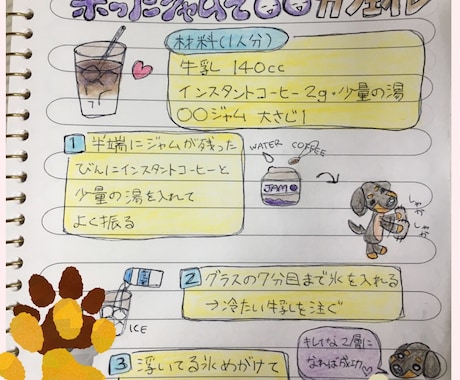 余ったジャムで〇〇カフェオレ
材料(1人分)
牛乳 140cc
インスタントコーヒー2g・少量の湯
〇〇ジャム 大さじ1
1 半端にジャムが残った
びんにインスタントコーヒーと
少量の湯を入れて
よく振る
WATER COFFEE
JAM
しゃか
しゃか
2 グラスの7分目まで氷を入れる
→冷たい牛乳を注ぐ
ICE
3 浮いてる氷めがけて
キレイな2層に
なれば成功